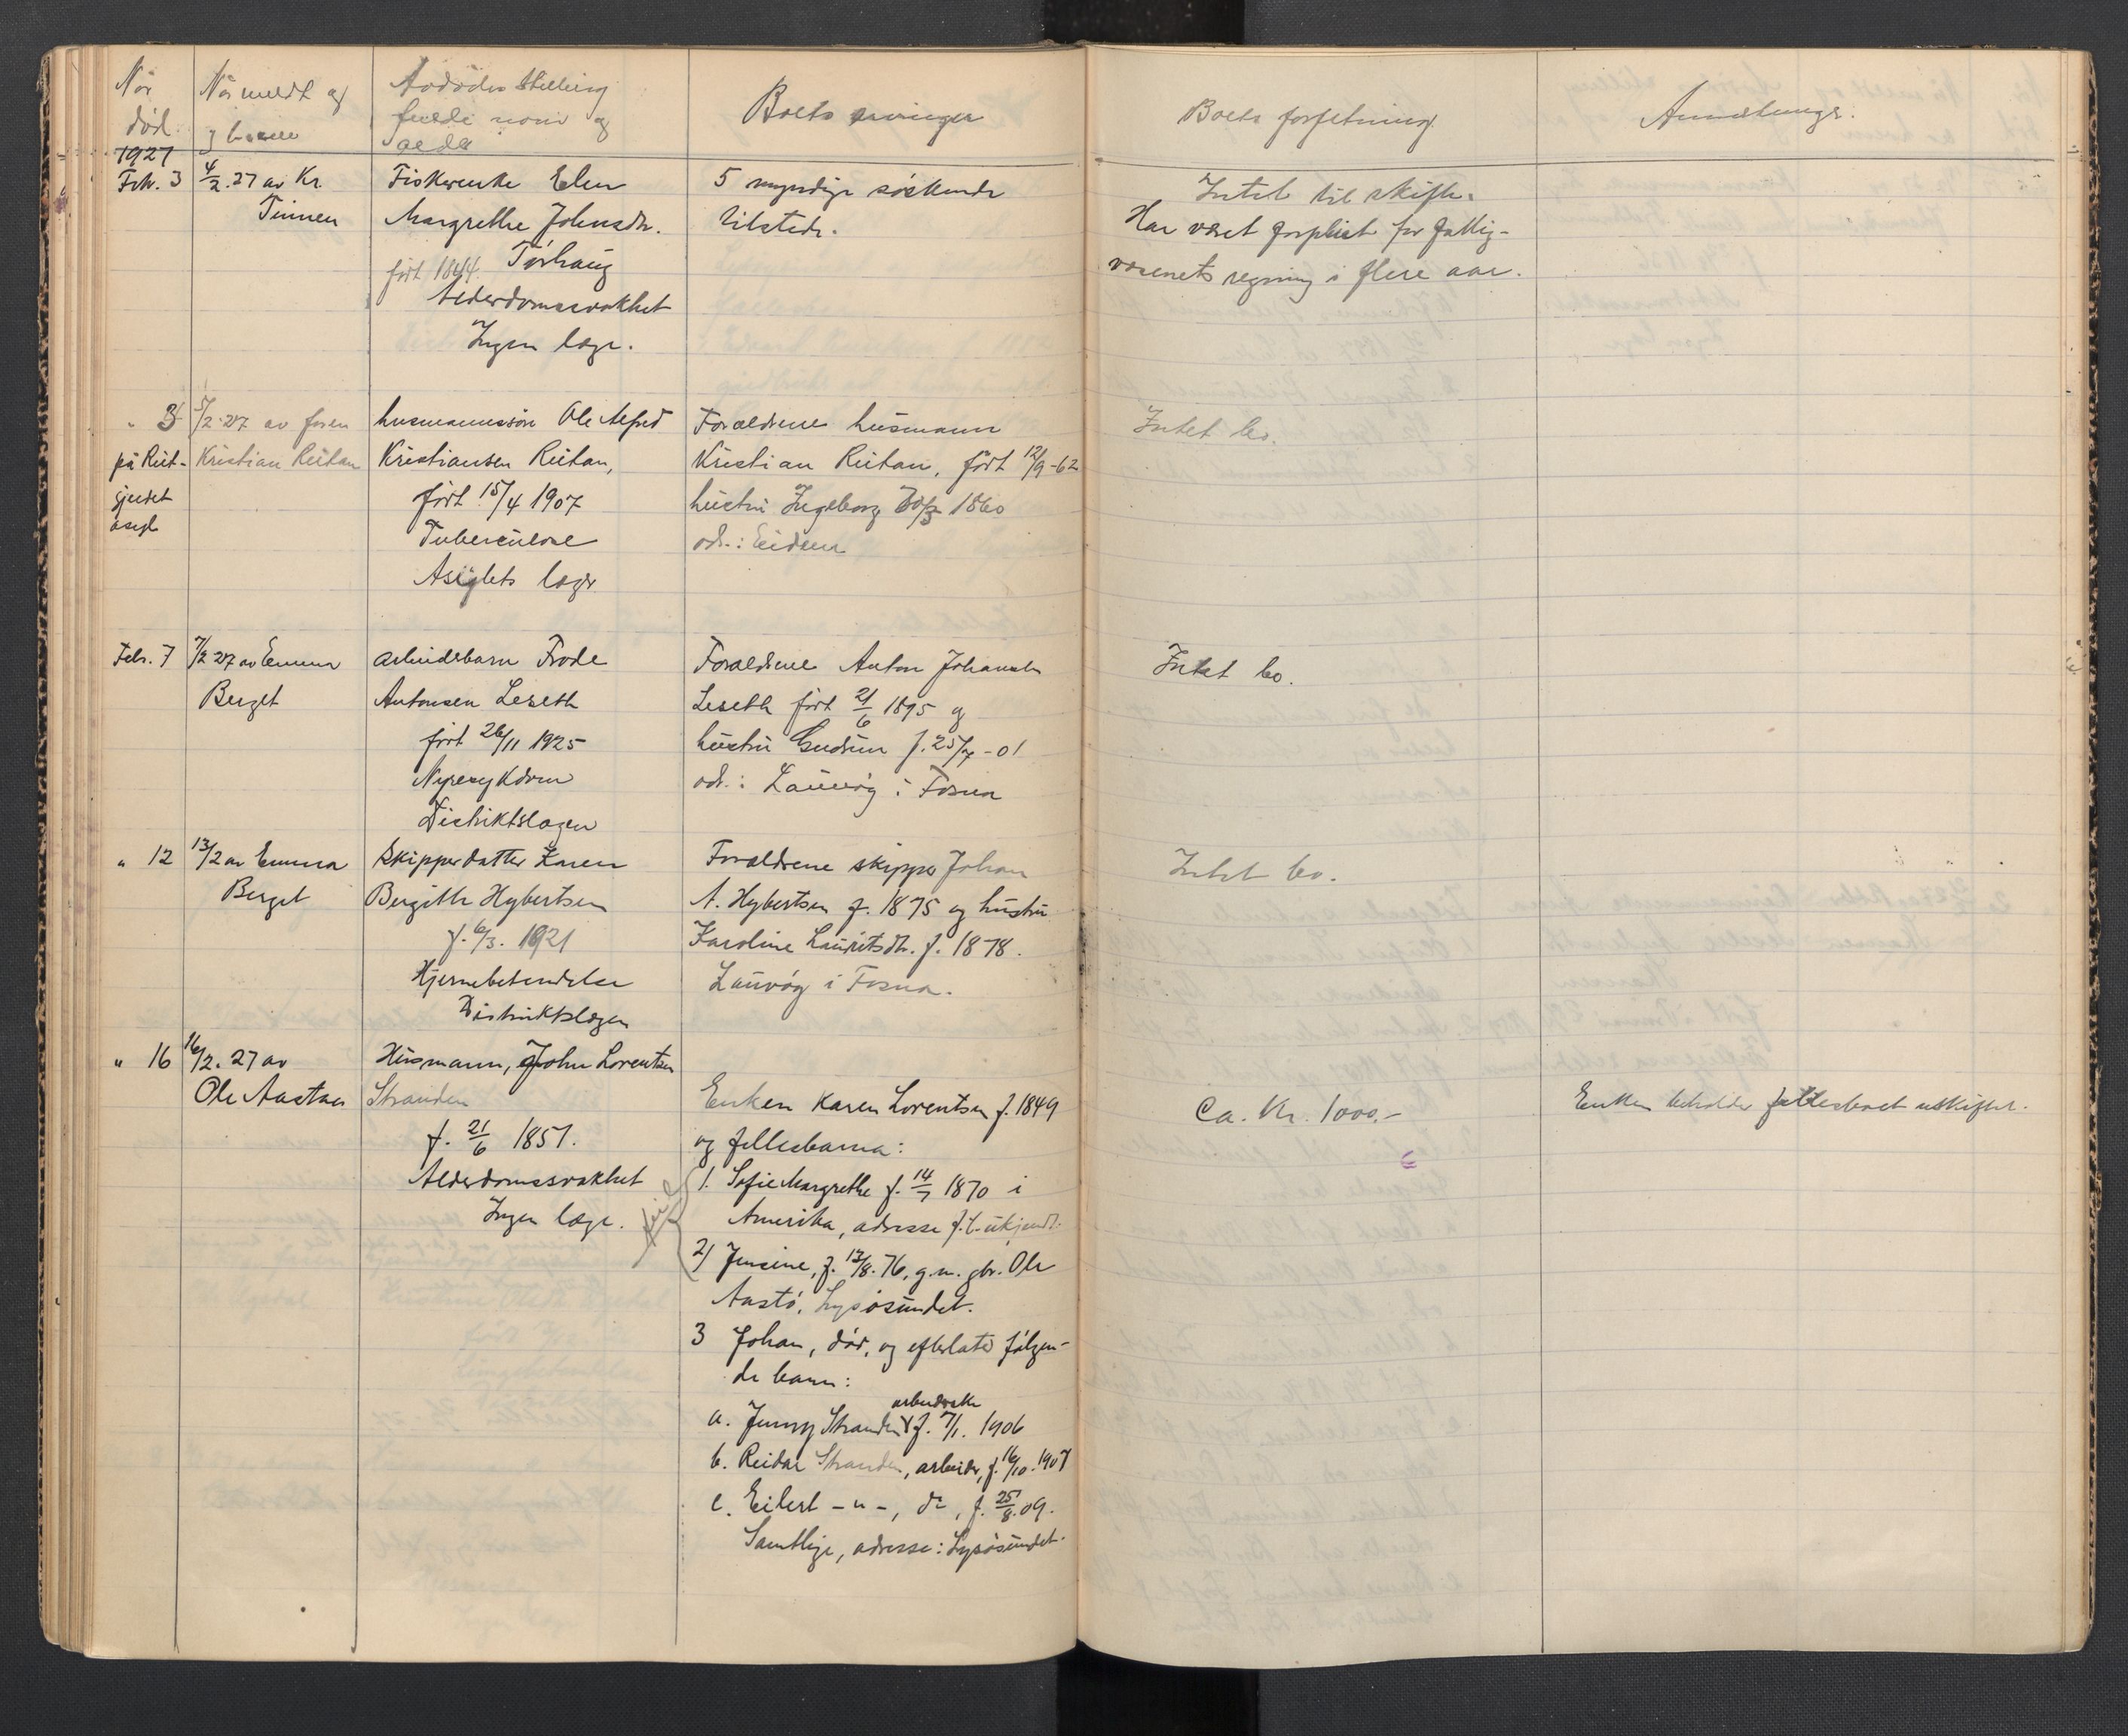 Når
død.
Når meldt og
Avdødes stilling
fulde navn og
Boets arvinger
Boets forfatning
Anmerkninger.
1927
Feb. 3
4/2.27 av Kr.
Tinnen
Fiskerenke Elen
Margrethe Johnsdtr.
født 1844. Tørhaug
Alderdomssvakhet
Ingen læge.
5 myndige søskende
tilstede.
Intet til skifte.
Har været forpleiet for fattig-
væsenets regning i flere aar.
" 3
på Reit-
gjerdet
asyl
5/2.27 av faren
Kristian Reitan
husmannssøn Ole Alfred
Kristiansen Reitan,
født 15/4 1907
Tuberculose
Asylets læge
Forældrene husmann
Kristian Reitan, født 12/9-62
hustru Ingeborg 30/3 1860
adr.: Eidem
Intet bo.
Feb. 7
7/2 27 av Emma
Berget
arbeidsbarn Frode
Antonsen Leseth
født 26/11 1925
Nyresykdom
Distriktslægen
Forældrene Anton Johansen
Leseth født 21/6 1895 og
hustru Gudrun f. 25/7-01
adr.: Lauvøy i Fosna
Intet bo.
" 12
13/2 av Emma
Berget
Skipperdatter Karen
Bergitte Hybertsen
f. 6/3. 1921
Hjernebetendelse
Distriktslægen
Forældrene skipper Johan
A. Hybertsen f. 1875 og hustru
Karoline Lauritsdtr. f. 1878.
Lauvøy i Fosna.
Intet bo.
" 16
16/2. 27 av
Ole Aastøe
Husmann, John Lorentsen
Stranden
f. 21/6 1851.
Alderdomssvakhet
Ingen læge.
Enken Karen Lorentsen f. 1849
og fellesbarna:
1. Sofie Margrethe f. 14/7 1870 i
Amerika, adresse f.t. ukjendt.
2) Jensine, f. 12/8.76, g.m. gbr. Ole
Aastø, Lysøsundet.
3 Johan, død, og efterlater følgen-
de barn:
arbeiderske
a. Jenny Stranden f. 7/1. 1906
b. Reidar Stranden, arbeider, f. 16/10.1907
c. Eilert -"-, do, f. 25/8.09.
Samtlige, adresse: Lysøsundet.
Ca. Kr. 1000,-
Enken beholder fellesboet uskiftet.